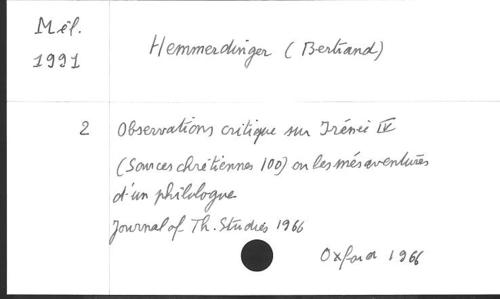 Mél.
1991
Hemmerdinger (Bertrand)
2 Observations critique sur Irénée IV
(Sources chrétiennes 100) ou les mésaventures
d'un philologue
Journal of Th. Studies 1966
Oxford 1966